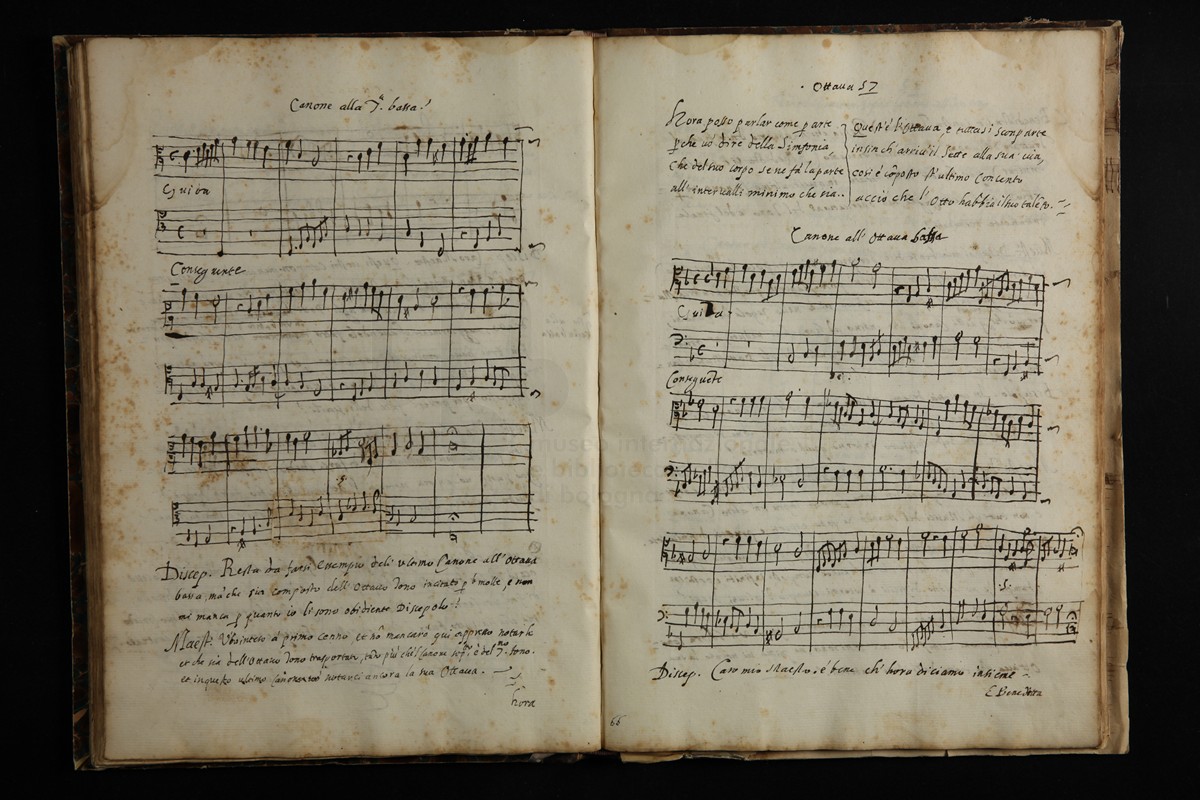 Canone alla 7.ª bassa
Guida
Conseguente
5
Discep. Resta da farsi essempio dell'ultimo Canone all'Ottava
bassa, ma che sia composto dell'Ottavo dono per b molle, e non
mi manca quanto io li sono obidiente Discepolo
Maest. Ubinteso al primo cenno et no mancarò qui appresso notarlo
et che sia dell'Ottavo tono trasportato, più ch'l Canone è del 7.º tono.
et in questo ultimo notarci ancora la sua Ottava.
hora
Ottava 57
Hora posso parlar come parte
che vo dire della Simfonia
Che del suo corpo se ne fà la parte
all' intervalli minimo che sia..
Quest'è l'Ottava e
insin ch' arrivi il Sette alla sua via,
cosi è cõposto st'ultimo Concento
acciò che l' Otto habbia il suo talẽto.
Canone all' Ottava bassa
Guida
Consequẽte
5.
Discep. Caro mio Maestro, è bene ch' hora diciamo insieme
E Benedetta
66
museo internazionale
e biblioteca
di bologna